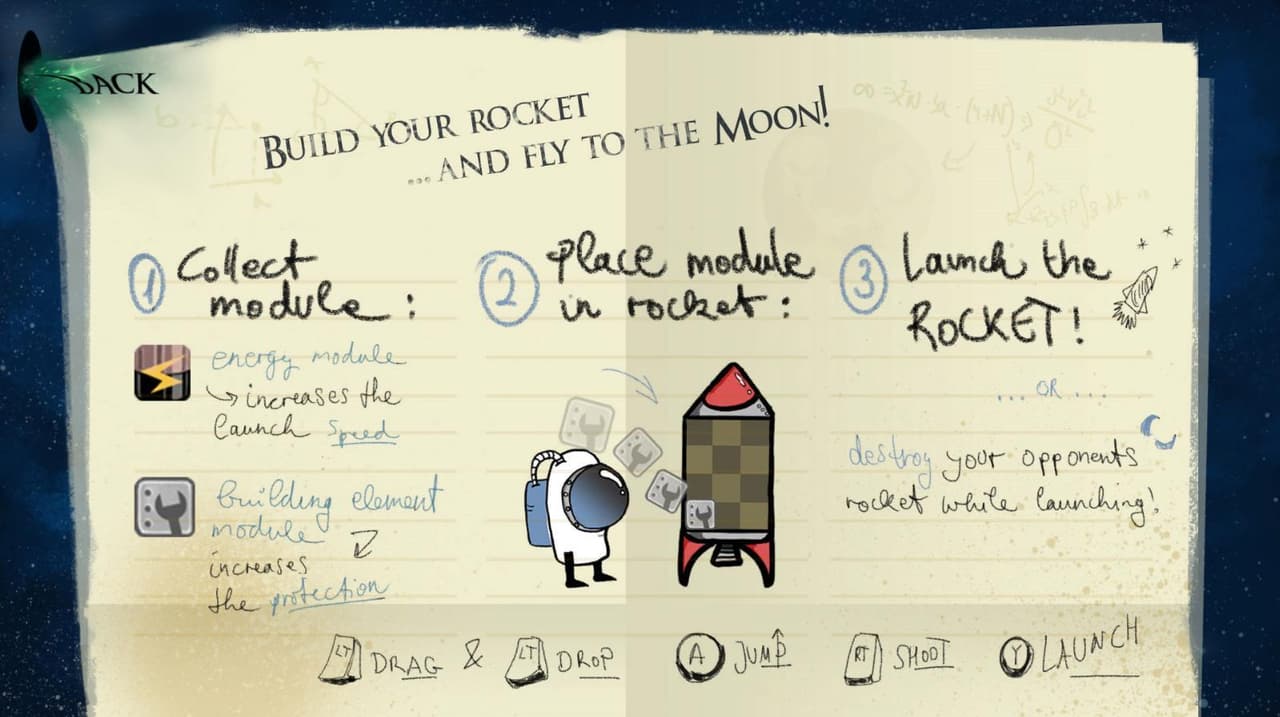 BACK
BUILD YOUR ROCKET
...AND FLY TO THE MOON!
1 Collect
module:
energy module
increases the
launch speed
building element
module
increases
the protection
2 Place module
in rocket:
3 Launch the
ROCKET!
... OR ...
destroy your opponents
rocket while launching!
LT DRAG & LT DROP A JUMP RT SHOOT Y LAUNCH